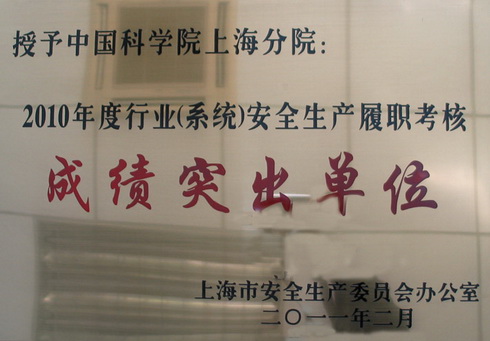 授予中国科学院上海分院:
2010年度行业(系统)安全生产履职考核
成绩突出单位
上海市安全生产委员会办公室
二〇一一年二月